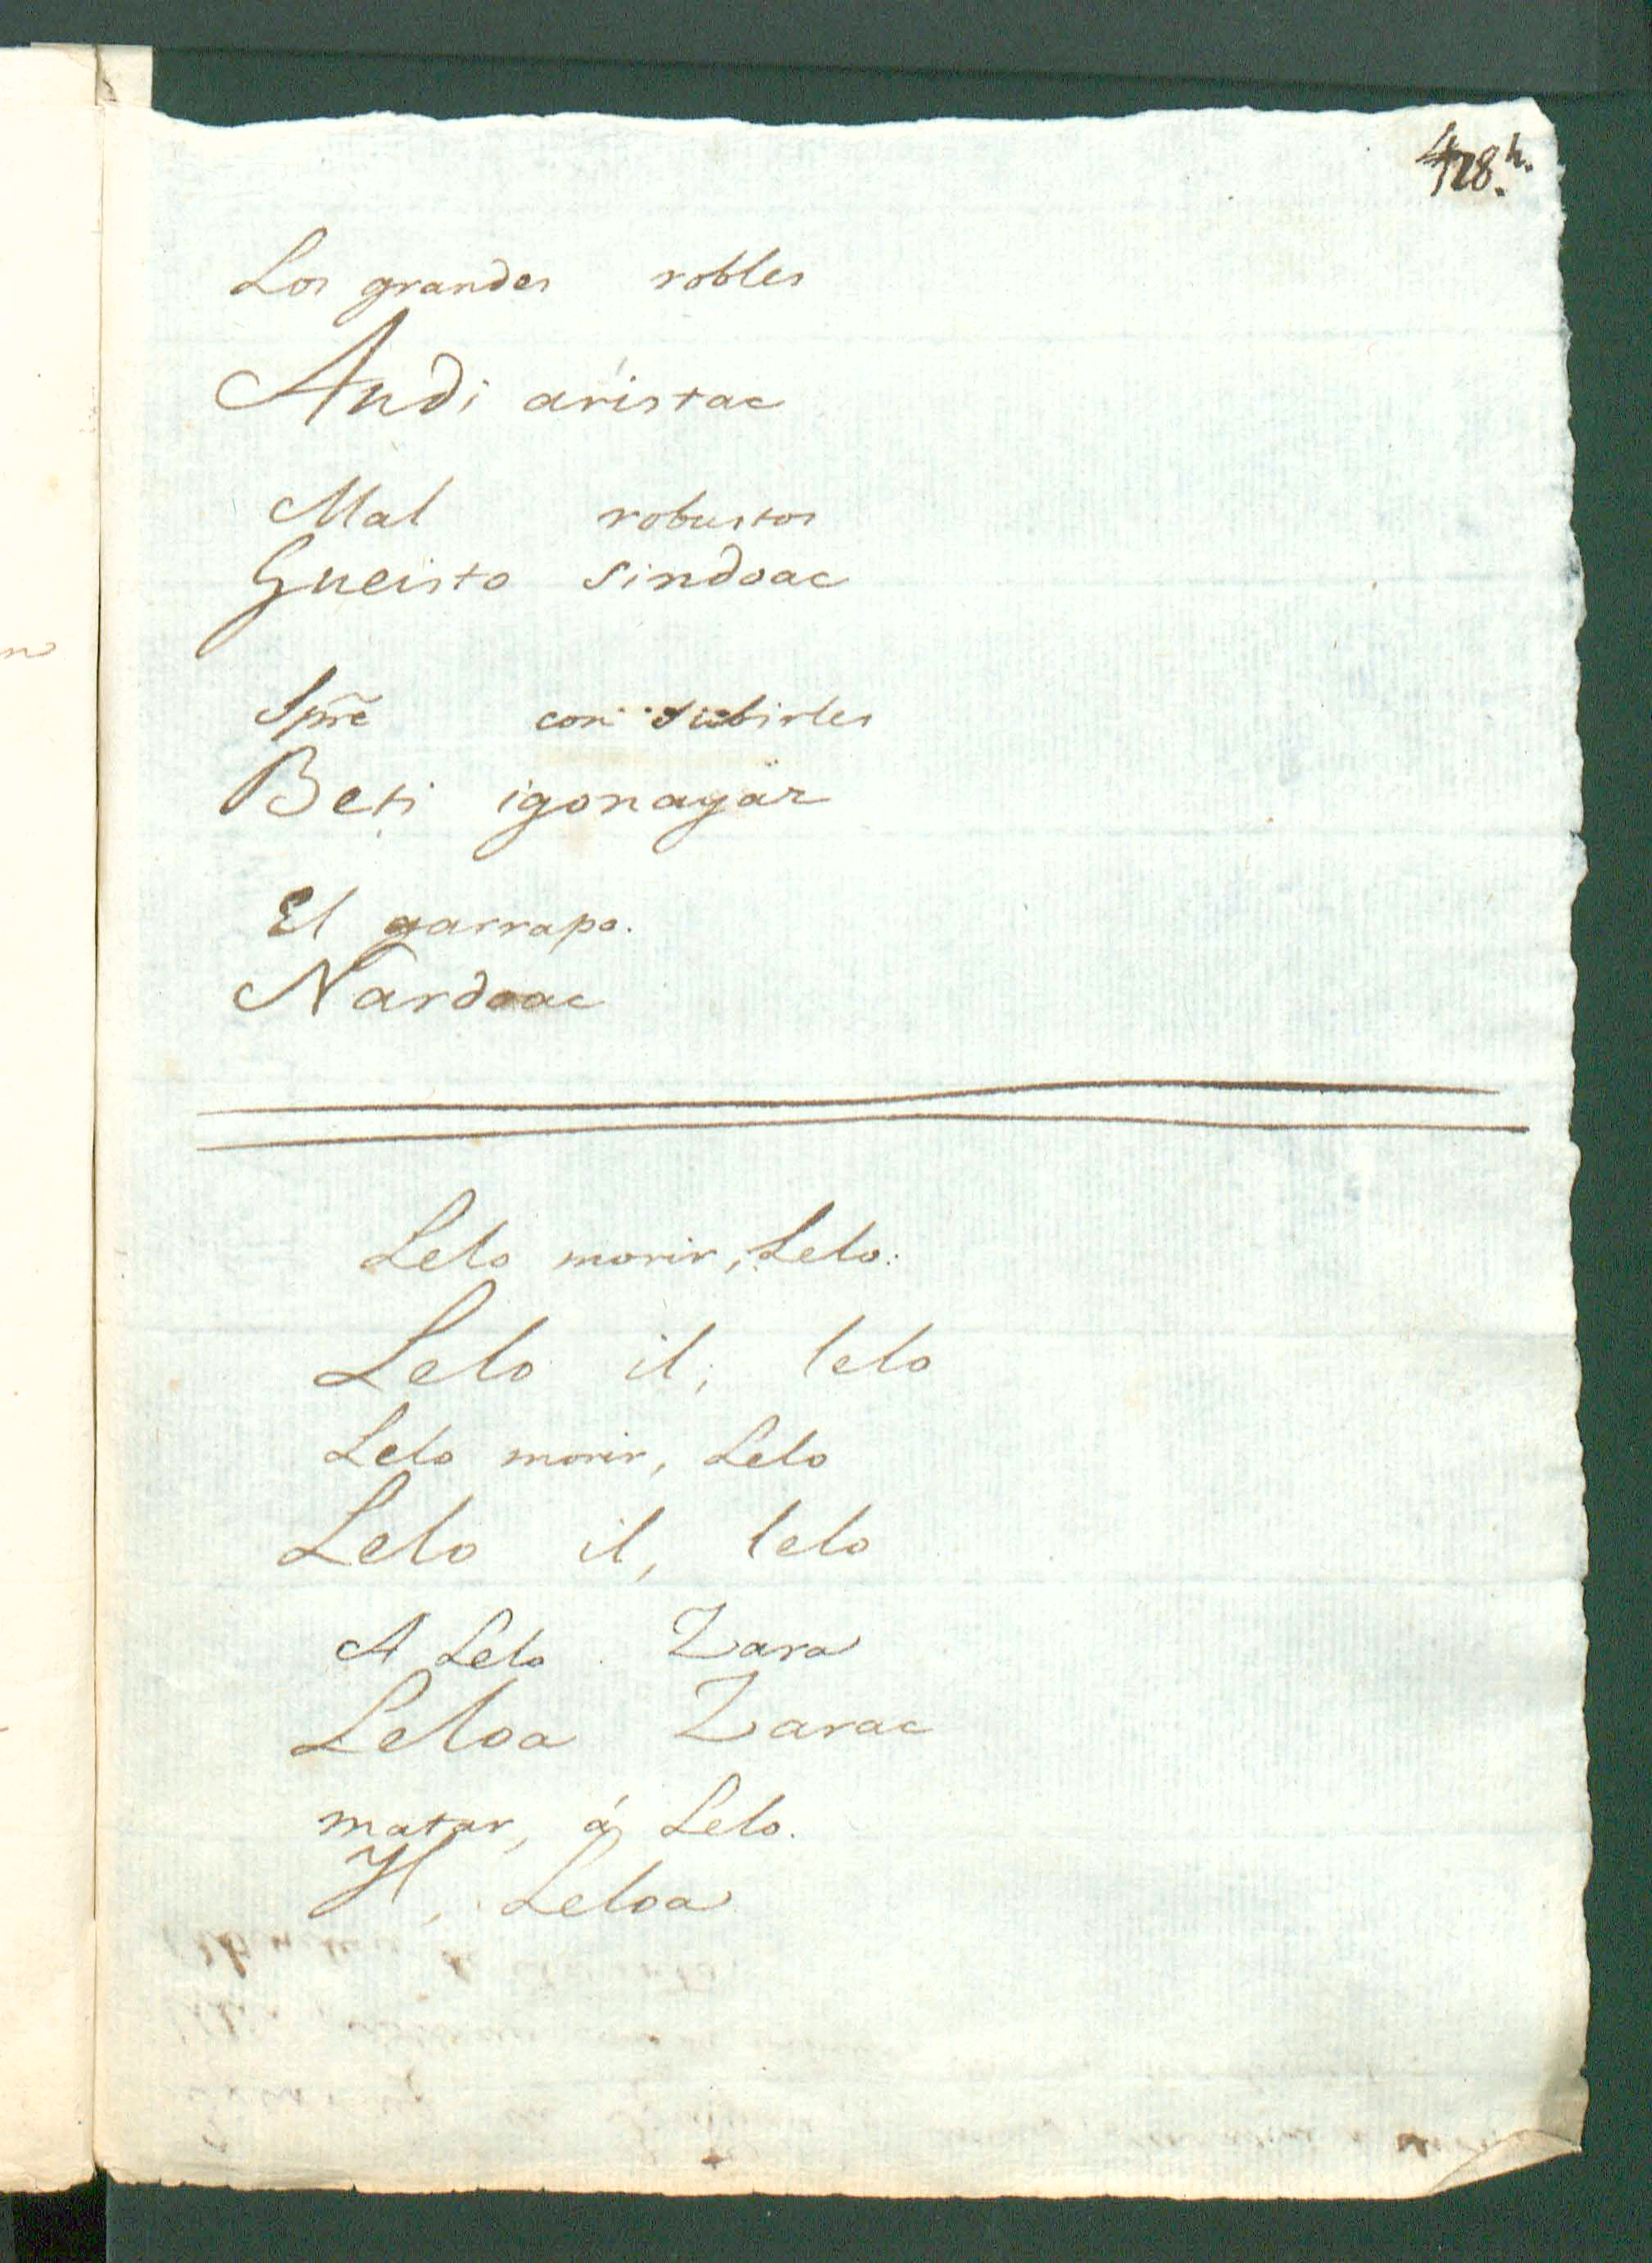 428.h.
Los grandes robles
Andi aristac
Mal robustos
Gueisto sindoac
Spre con subirles
Beti igonayaz
El garrapo.
Nardoac
Lelo morir, Lelo.
Lelo il; lelo
Lelo morir, Lelo
Lelo il, lelo
A Lelo Zara
Leloa Zarac
matar, á Lelo.
Il, Leloa